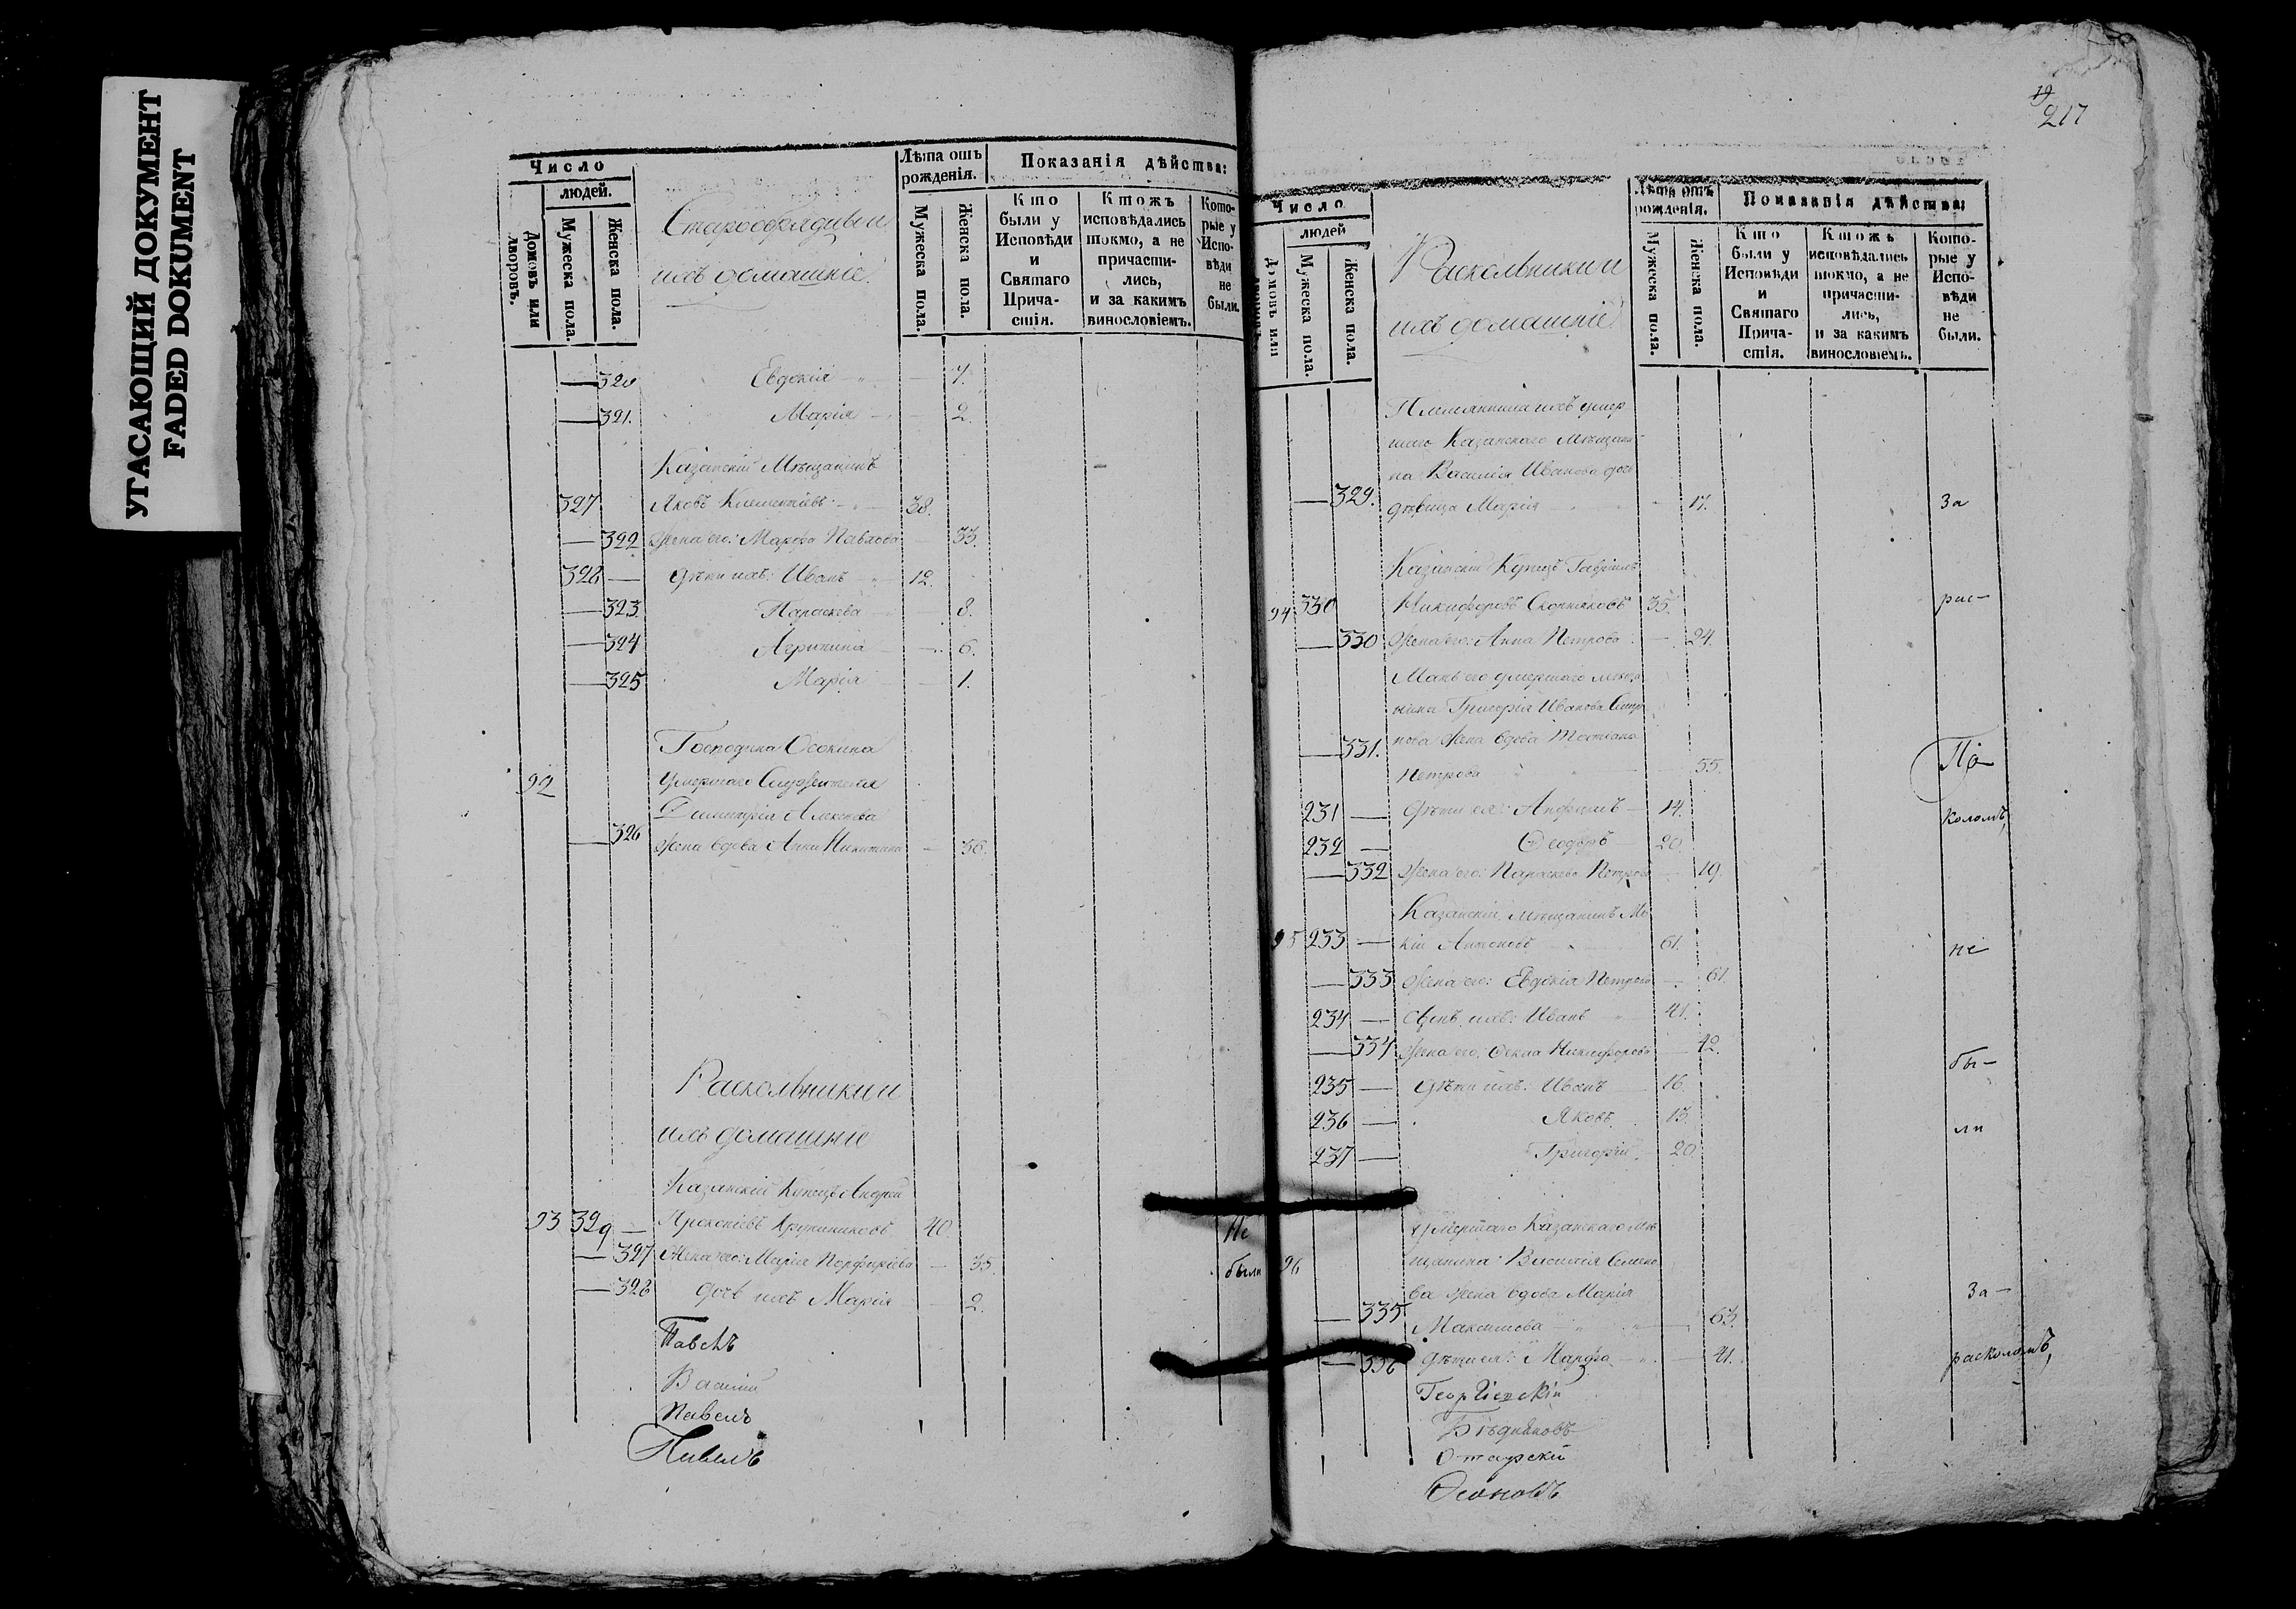 УГАСАЮЩИЙ ДОКУМЕНТ
FADED DOKUMENT
Число
людей.
Домовъ или дворовъ.
Мужеска пола.
Женска пола.
Старообрядцы и
ихъ домашніе.
Лѣта отъ рожденія.
Мужеска пола.
Женска пола.
Показанія дѣйства:
Кто были у Исповѣди и Святаго Прича-стія.
Ктожъ исповѣдались токмо, а не причасти-лись, и за какимъ винословіемъ.
Кото-рые у Испо-вѣди не были.
320 Евдокія 7.
321. Марія 2.
Казанскій Мѣщанинъ
327 Яковъ Климентіевъ 38.
322 Жена его: Марѳа Павлова 33.
328 Дѣти ихъ: Иванъ 12.
323 Параскева 8.
324 Агрипина 6.
325 Марія 1.
Господина Осокина
92 Умершаго Служителя
Димитрія Алексѣева
326 Жена вдова Анна Никитина 56.
Раскольники и
ихъ домашніе
Казанскій Купецъ Андрей
93 329 Прокопіевъ 40
327 Жена его: Марія Порфиріева 35.
328 Дочь ихъ Марія 2.
Не
были
Павелъ
Василій
Павелъ
Павелъ
19
217
Число
людей
Домовъ или дворовъ
Мужеска пола.
Женска пола.
Раскольники и
ихъ домашніе
Лѣта отъ рожденія.
Мужеска пола.
Женска пола.
Показанія дѣйства:
Кто были у Исповѣди и Святаго Прича-стія.
Ктожъ исповѣдались токмо, а не причасти-лись, и за какимъ винословіемъ.
Кото-рые у Испо-вѣди не были.
Племянница ихъ умер
шаго Казанскаго Мѣщани-
на Василія Иванова дочь
329. дѣвица Марія 17. За
Казанскій Купецъ Гавріилъ
94 330 Никифоровъ 35. рас-
330 Жена его: Анна Петрова 24.
Мать его умершаго мѣща
нина Григорія Иванова
331. нова жена вдова Татіана
Петрова 55.
231 Дѣти ея: 14. коломъ,
232 Ѳеодоръ 20
332 Жена его: Параскева Петрова 19.
Казанскій мѣщанинъ Мо
95 233 кій Антоновъ 61. не
333 Жена его: Евдокія Петрова 61.
234 Сынъ ихъ: Иванъ 41.
334 Жена его: Ѳекла Никифорова 42. бы-
235 Дѣти ихъ: Иванъ 16.
236 Яковъ 13. ли
237 Григорій 20.
Умершаго Казанскаго мѣ
96 щанина Василія Семено
ва жена вдова Марія За-
335 Максимова 63.
336 Дѣти ея: Марѳа 41. расколомъ,
Георгіевскій
Бѣдняковъ
Отарскій
Осоновъ